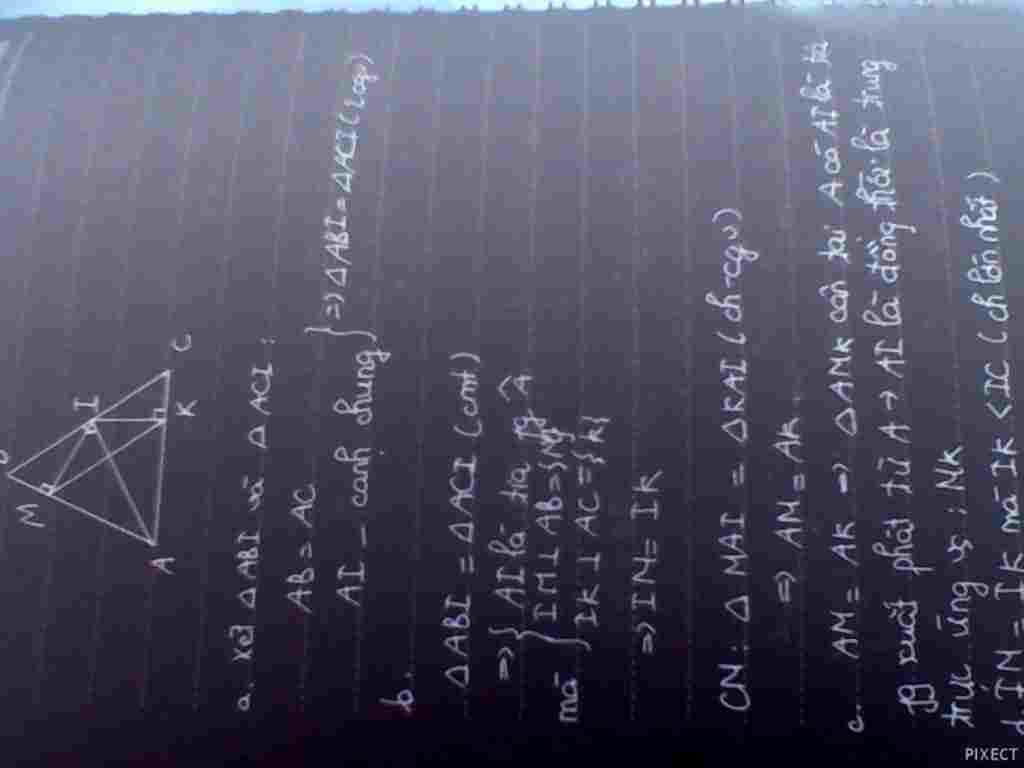 M
I
C
K
A
a. xét Δ ABI và Δ ACI :
AB = AC
AI - cạnh chung } => Δ ABI = Δ ACI (
b.
Δ ABI = Δ ACI (cmt)
=> { AI là tia pg Â
mà { IM ⊥ AB =
IK ⊥ AC =
=> IM = IK
CN: Δ MAI = Δ KAI (ch-cgv)
=> AM = AK
c. AM = AK => Δ AMK cân tại A có AI là tia
pg xuất phát từ A → AI là đồng thời là trung
trực ứng vs : MK
d. IM = IK mà IK < IC (ch lớn nhất)
PIXECT